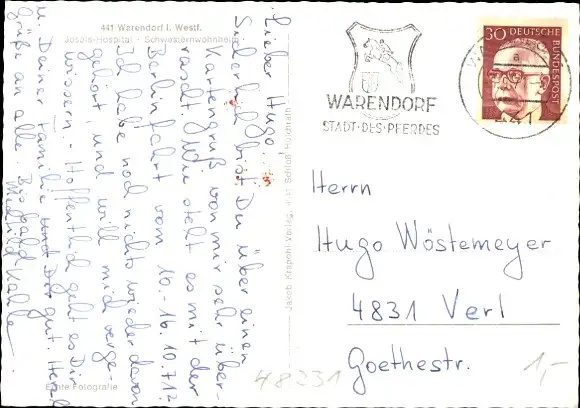 441 Warendorf i. Westf.
Josefs-Hospital - Schwesternwohnheim
Lieber Hugo,
Sicherlich bist Du über einen
Kartengruß von mir sehr über-
rascht. Wie steht es mit der
Berlinfahrt vom 10.-16.10.71?
Ich habe noch nichts wieder davon
gehört, und will mich verge-
wissern. - Hoffentlich geht es Dir
u. Deiner Familie gut. Herzl.
Grüße an alle. Bis bald
Mechtild
Echte Fotografie
Jakob Krapohl-Verlag, Schloß Hülchrath
WARENDORF
STADT·DES·PFERDES
30 DEUTSCHE
BUNDESPOST
a
441
Herrn
Hugo Wöstemeyer
4831 Verl
Goethestr.
48231
1,-